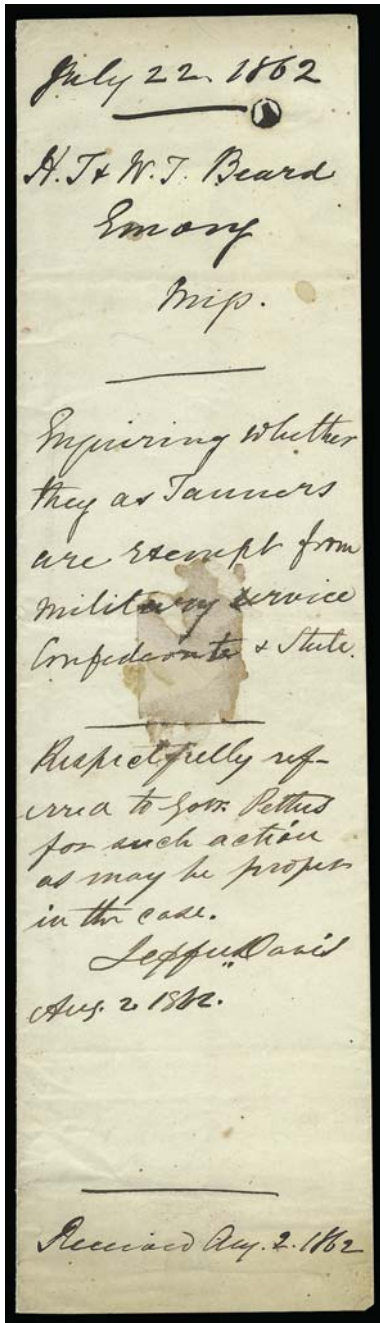 July 22. 1862
H. T & W. T. Beard
Emory
Miss.
Enquiring whether
they as Tanners
are exempt from
military service
Confederate & State.
Respectfully ref-
erred to Govr. Pettus
for such action
as may be proper
in the case.
Jeffn Davis
Aug. 2 1862.
Received Aug. 2. 1862